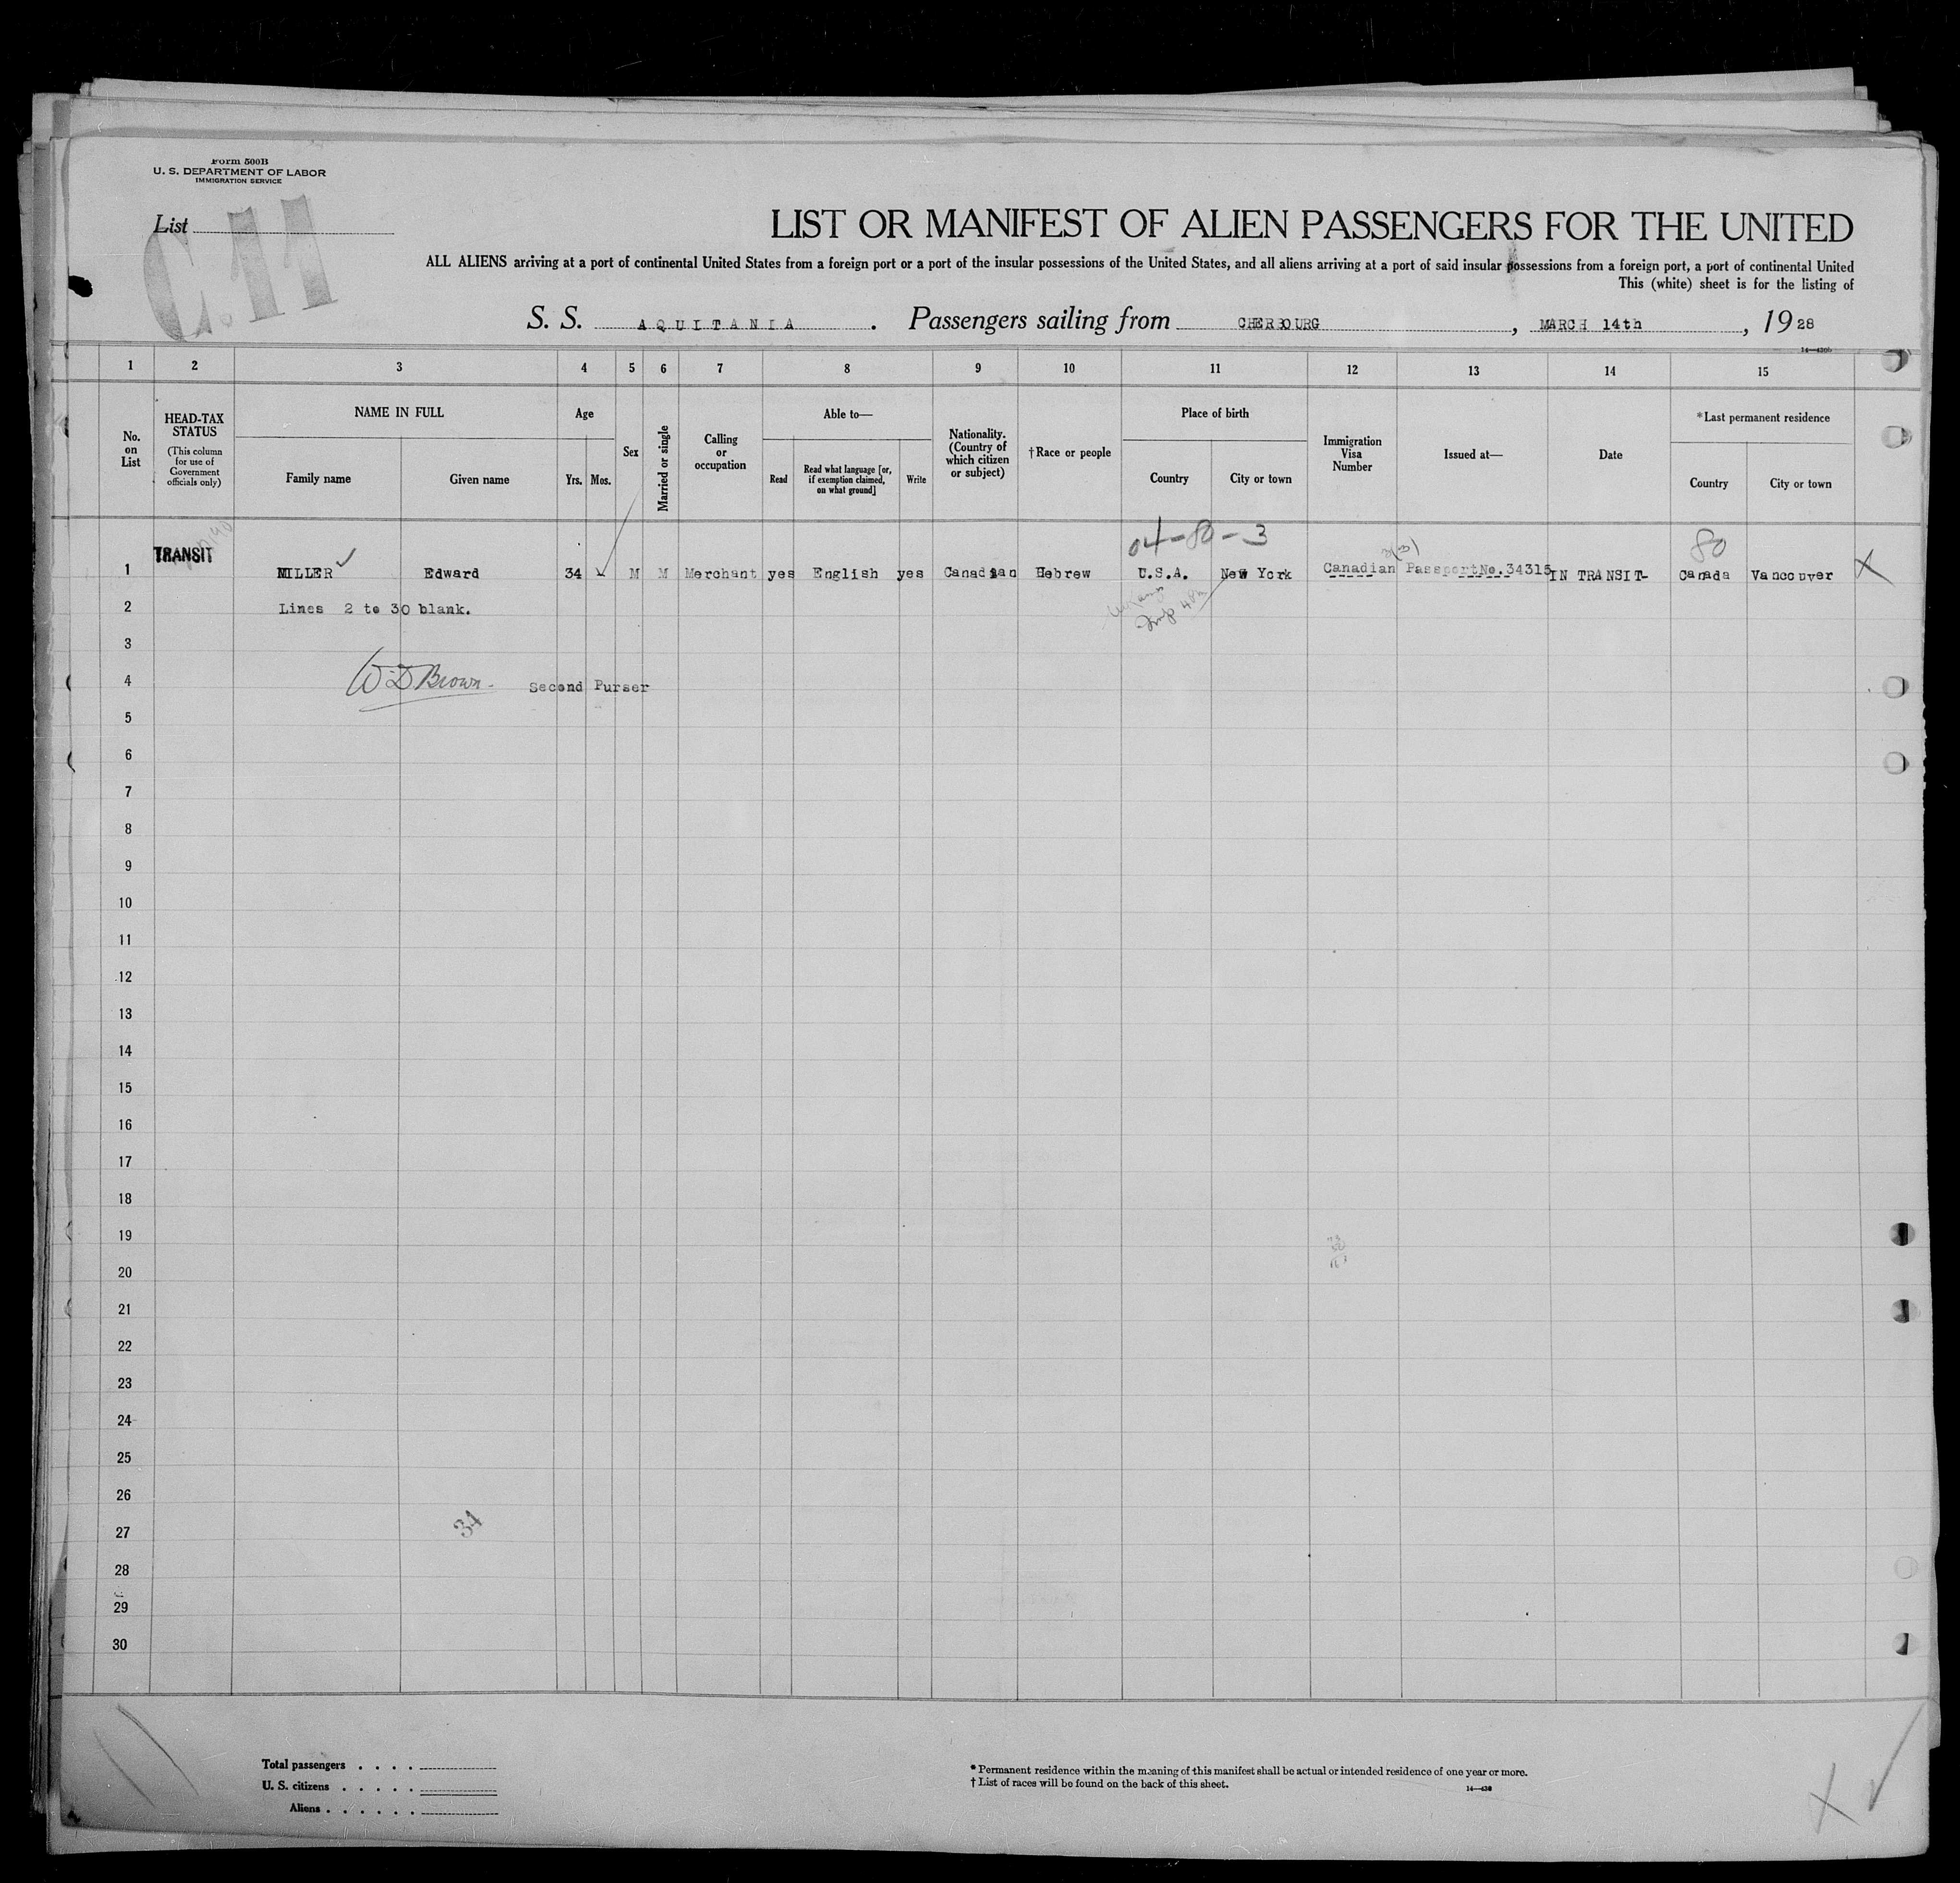 Form 500B
U. S. DEPARTMENT OF LABOR
IMMIGRATION SERVICE
List
C.11
LIST OR MANIFEST OF ALIEN PASSENGERS FOR THE UNITED
ALL ALIENS arriving at a port of continental United States from a foreign port or a port of the insular possessions of the United States, and all aliens arriving at a port of said insular possessions from a foreign port, a port of continental United
This (white) sheet is for the listing of
S. S. AQUITANIA. Passengers sailing from CHERBOURG, MARCH 14th, 1928
14—430b
1 2 3 4 5 6 7 8 9 10 11 12 13 14 15
No. on List
HEAD-TAX STATUS
(This column for use of Government officials only)
NAME IN FULL
Family name
Given name
Age
Yrs. Mos.
Sex
Married or single
Calling or occupation
Able to—
Read
Read what language [or, if exemption claimed, on what ground]
Write
Nationality. (Country of which citizen or subject)
†Race or people
Place of birth
Country
City or town
Immigration Visa Number
Issued at—
Date
*Last permanent residence
Country
City or town
04-80-3
3(3)
80
1 TRANSIT MILLER Edward 34 M M Merchant yes English yes Canadian Hebrew U.S.A. New York Canadian Passport No.34315 IN TRANSIT- Canada Vancouver X
2 Lines 2 to 30 blank.
3
4 W D Brown Second Purser
5
6
7
8
9
10
11
12
13
14
15
16
17
18
19
20
21
22
23
24
25
26
27
34
28
29
30
Total passengers . . . .
U. S. citizens . . . . .
Aliens . . . . . .
*Permanent residence within the meaning of this manifest shall be actual or intended residence of one year or more.
†List of races will be found on the back of this sheet.
14—430
X